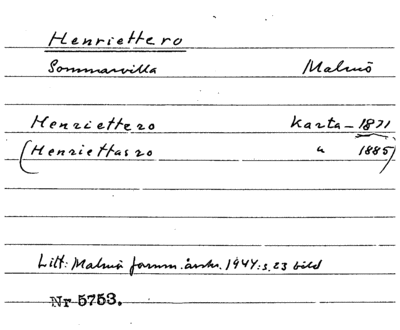 Henriettero
Sommarvilla Malmö
Henriettero Karta - 1871
(Henriettasro " 1885)
Litt: Malmö fornm. årskr. 1944: s. 23 bild
Nr 5753.